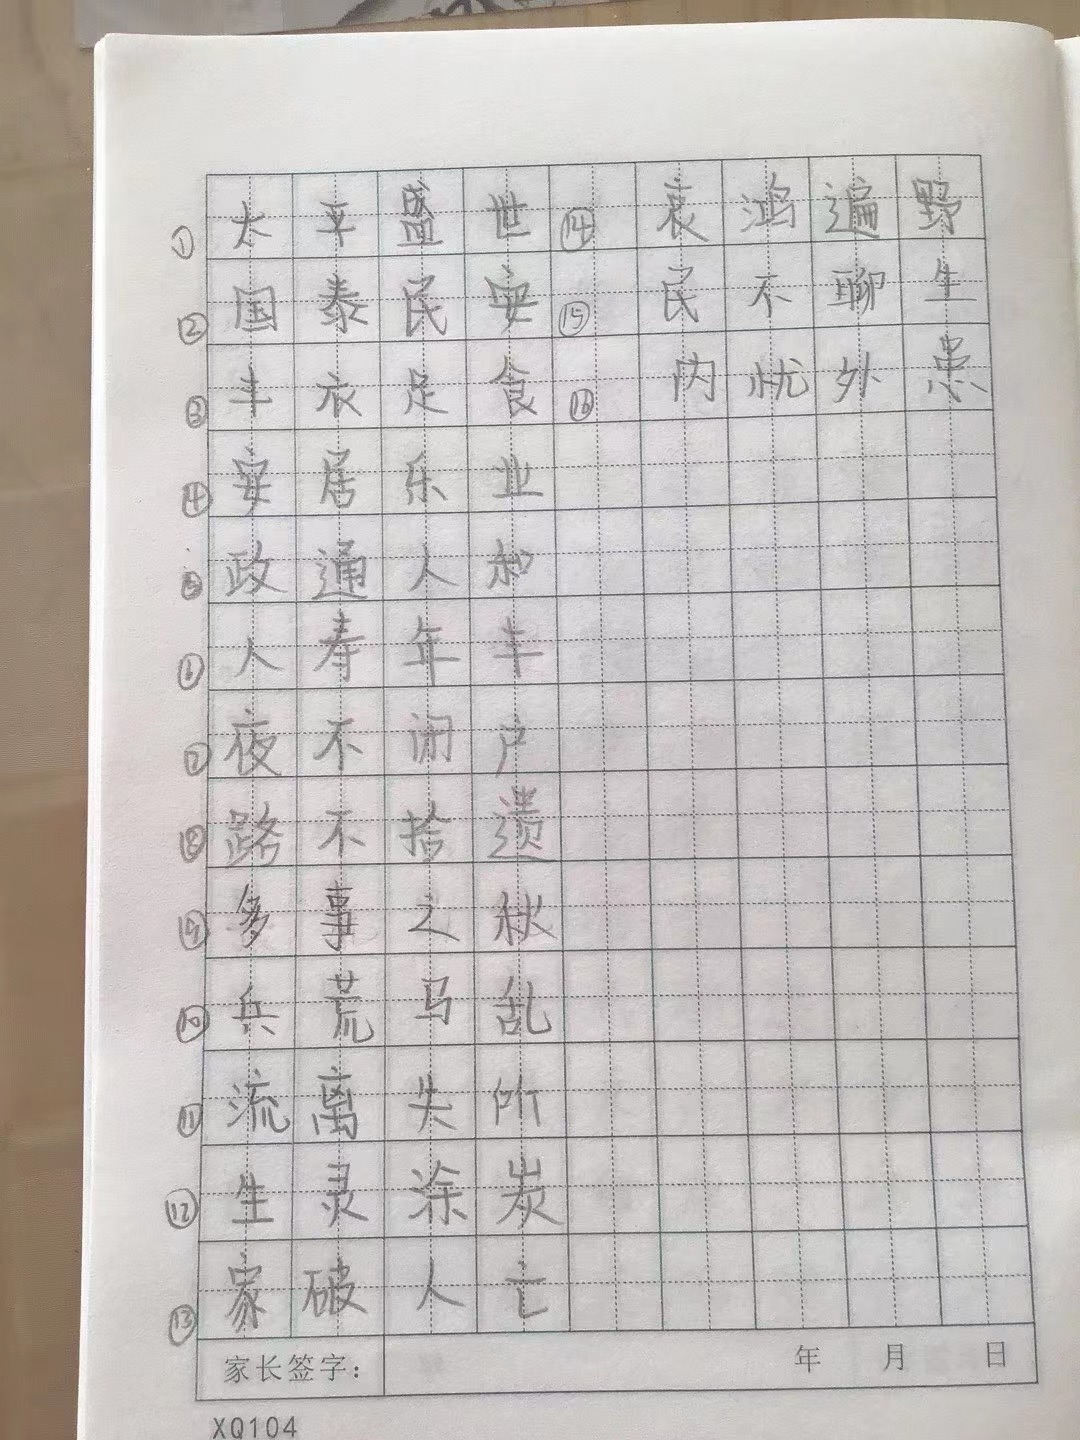 ① 太平盛世 ⑭ 哀鸿遍野
② 国泰民安 ⑮ 民不聊生
③ 丰衣足食 ⑯ 内忧外患
④ 安居乐业
⑤ 政通人和
⑥ 人寿年丰
⑦ 夜不闭户
⑧ 路不拾遗
⑨ 多事之秋
⑩ 兵荒马乱
⑪ 流离失所
⑫ 生灵涂炭
⑬ 家破人亡
家长签字： 年 月 日
XQ104